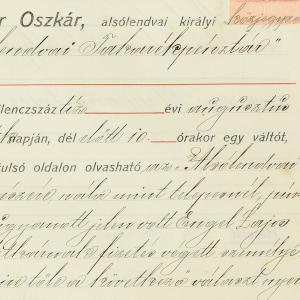 r Oszkár, alsólendvai királyi közjegyző
lendvai Takarékpénztár"
ilenczszáz tíz évi augusztus
napján, dél előtt 10 órakor egy váltót,
tulsó oldalon olvasható az „Alsólendvai
részére nála mint telepesnél, pén
ugyanott jelen volt Engel Lajos
fizetés végett személye
tőle a következő választ nyer